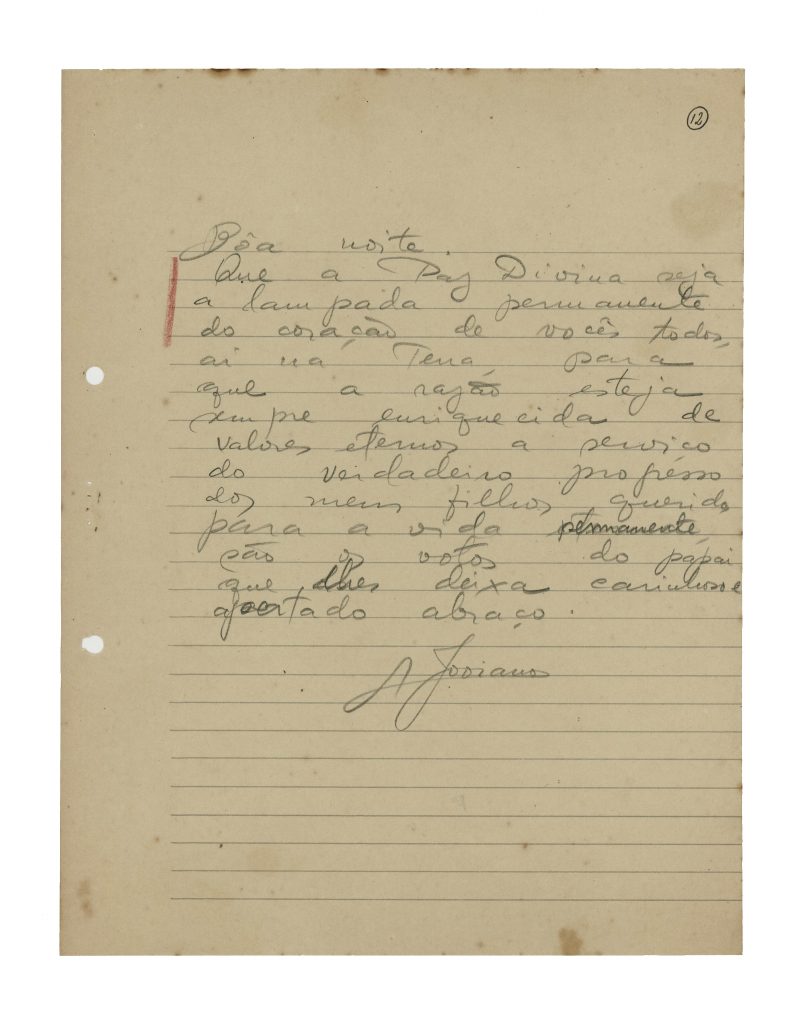 12
Bôa noite.
Que a Paz Divina seja
a lampada permanente
do coração de vocês todos,
ai na Terra, para
que a razão esteja
sempre enriquecida de
valores eternos a serviço
do verdadeiro progresso
dos meus filhos queridos
para a vida permanente,
são os votos do papai
que lhes deixa carinhoso e
apertado abraço.
A Joviano